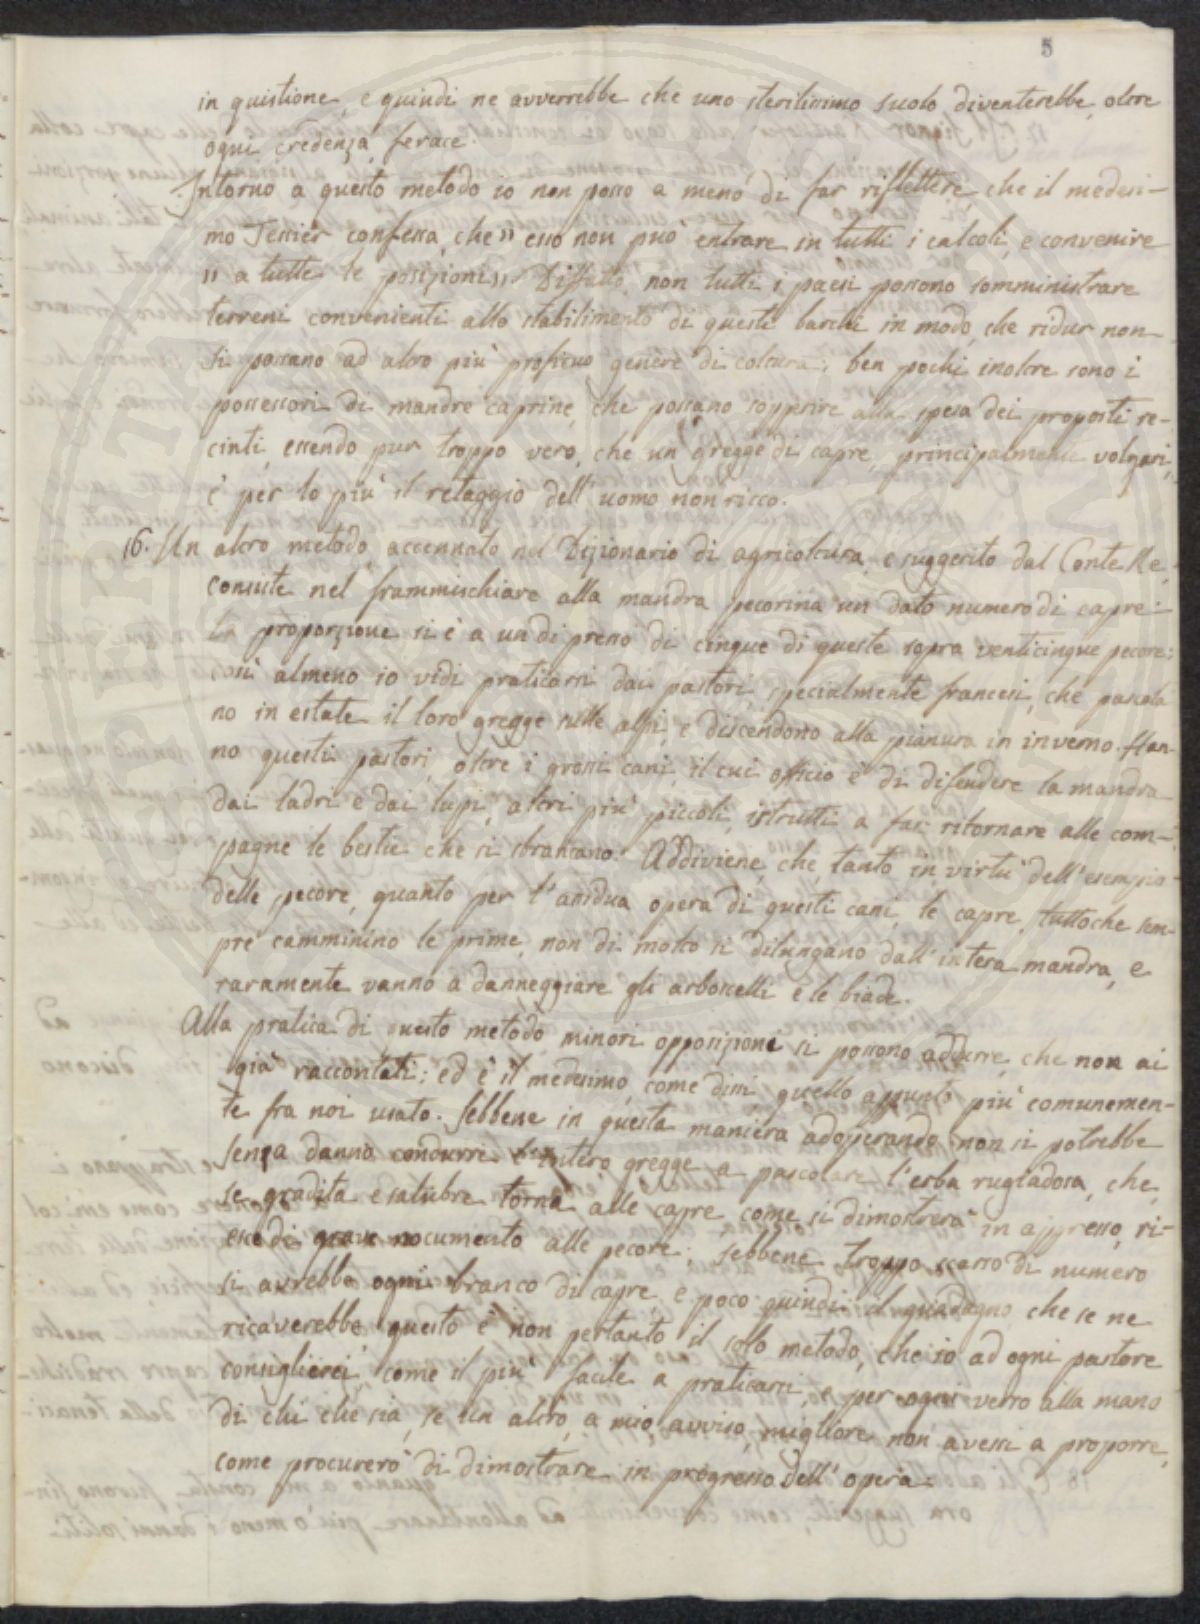 5
in quistione, e quindi ne avverrebbe che uno sterilissimo suolo diventerebbe, oltre
ogni credenza, ferace.
Intorno a questo metodo io non posso a meno di far riflettere, che il medesi-
mo Tessier confessa, che » esso non può entrare in tutti i calcoli, e convenire
» a tutte le posizioni». Diffatto, non tutti i paesi possono somministrare
terreni convenienti allo stabilimento di questi barchi in modo, che ridur non
si possano ad altro più proficuo genere di coltura; ben pochi inoltre sono i
possessori di mandre caprine, che possano sopperire alla spesa dei proposti re-
cinti, essendo pur troppo vero, che un gregge di capre, principalmente volgari,
è per lo più il retaggio dell'uomo non ricco.
16. Un altro metodo accennato nel Dizionario di agricoltura, e suggerito dal Conte Re,
consiste nel frammischiare alla mandra pecorina un dato numero di capre:
la proporzione si è a un di presso di cinque di queste sopra venticinque pecore;
così almeno io vidi praticarsi dai pastori, specialmente francesi, che pascola
no in estate il loro gregge sulle alpi, e discendono alla pianura in inverno. Han-
no questi pastori, oltre i grossi cani, il cui officio è di difendere la mandra
dai ladri e dai lupi, altri più piccoli, istrutti a far ritornare alle com-
pagne le bestie che si sbrancano. Addiviene, che, tanto in virtù dell'esempio
delle pecore, quanto per l'assidua opera di questi cani, le capre, tuttochè sem-
pre camminino le prime, non di molto si dilungano dall'intera mandra, e
raramente vanno a danneggiare gli arboscelli e le biade.
Alla pratica di questo metodo minori opposizioni si possono addurre, che non ai
già raccontati; ed è il medesimo, come dissi, quello appunto più comunemen-
te fra noi usato. Sebbene in questa maniera adoperando, non si potrebbe
senza danno condurre l'intero gregge a pascolare l'erba rugiadosa, che,
se gradita e salubre torna alle capre, come si dimostrerà in appresso, ri-
esce di grave nocumento alle pecore; sebbene troppo scarso di numero
si avrebbe ogni branco di capre, e poco quindi il guadagno che se ne
ricaverebbe, questo è non pertanto il solo metodo, che io ad ogni pastore
consiglierei, come il più facile a praticarsi, e per ogni verso alla mano
di chi che sia, se un altro, a mio avviso, migliore non avessi a proporre,
come procurerò di dimostrare in progresso dell'opera.